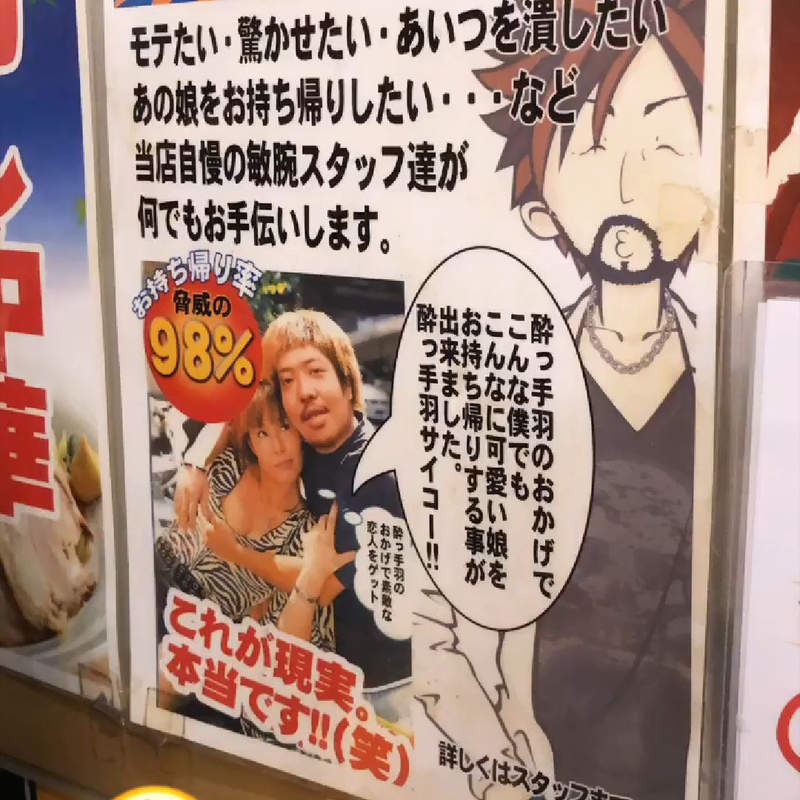 モテたい・驚かせたい・あいつを潰したい
あの娘をお持ち帰りしたい・・・など
当店自慢の敏腕スタッフ達が
何でもお手伝いします。
お持ち帰り率
脅威の
98%
酔っ手羽のおかげで
こんな僕でも
こんなに可愛い娘を
お持ち帰りする事が
出来ました。
酔っ手羽サイコー!!
酔っ手羽の
おかげで素敵な
恋人をゲット
これが現実。
本当です!!(笑)
詳しくはスタッフ
中華